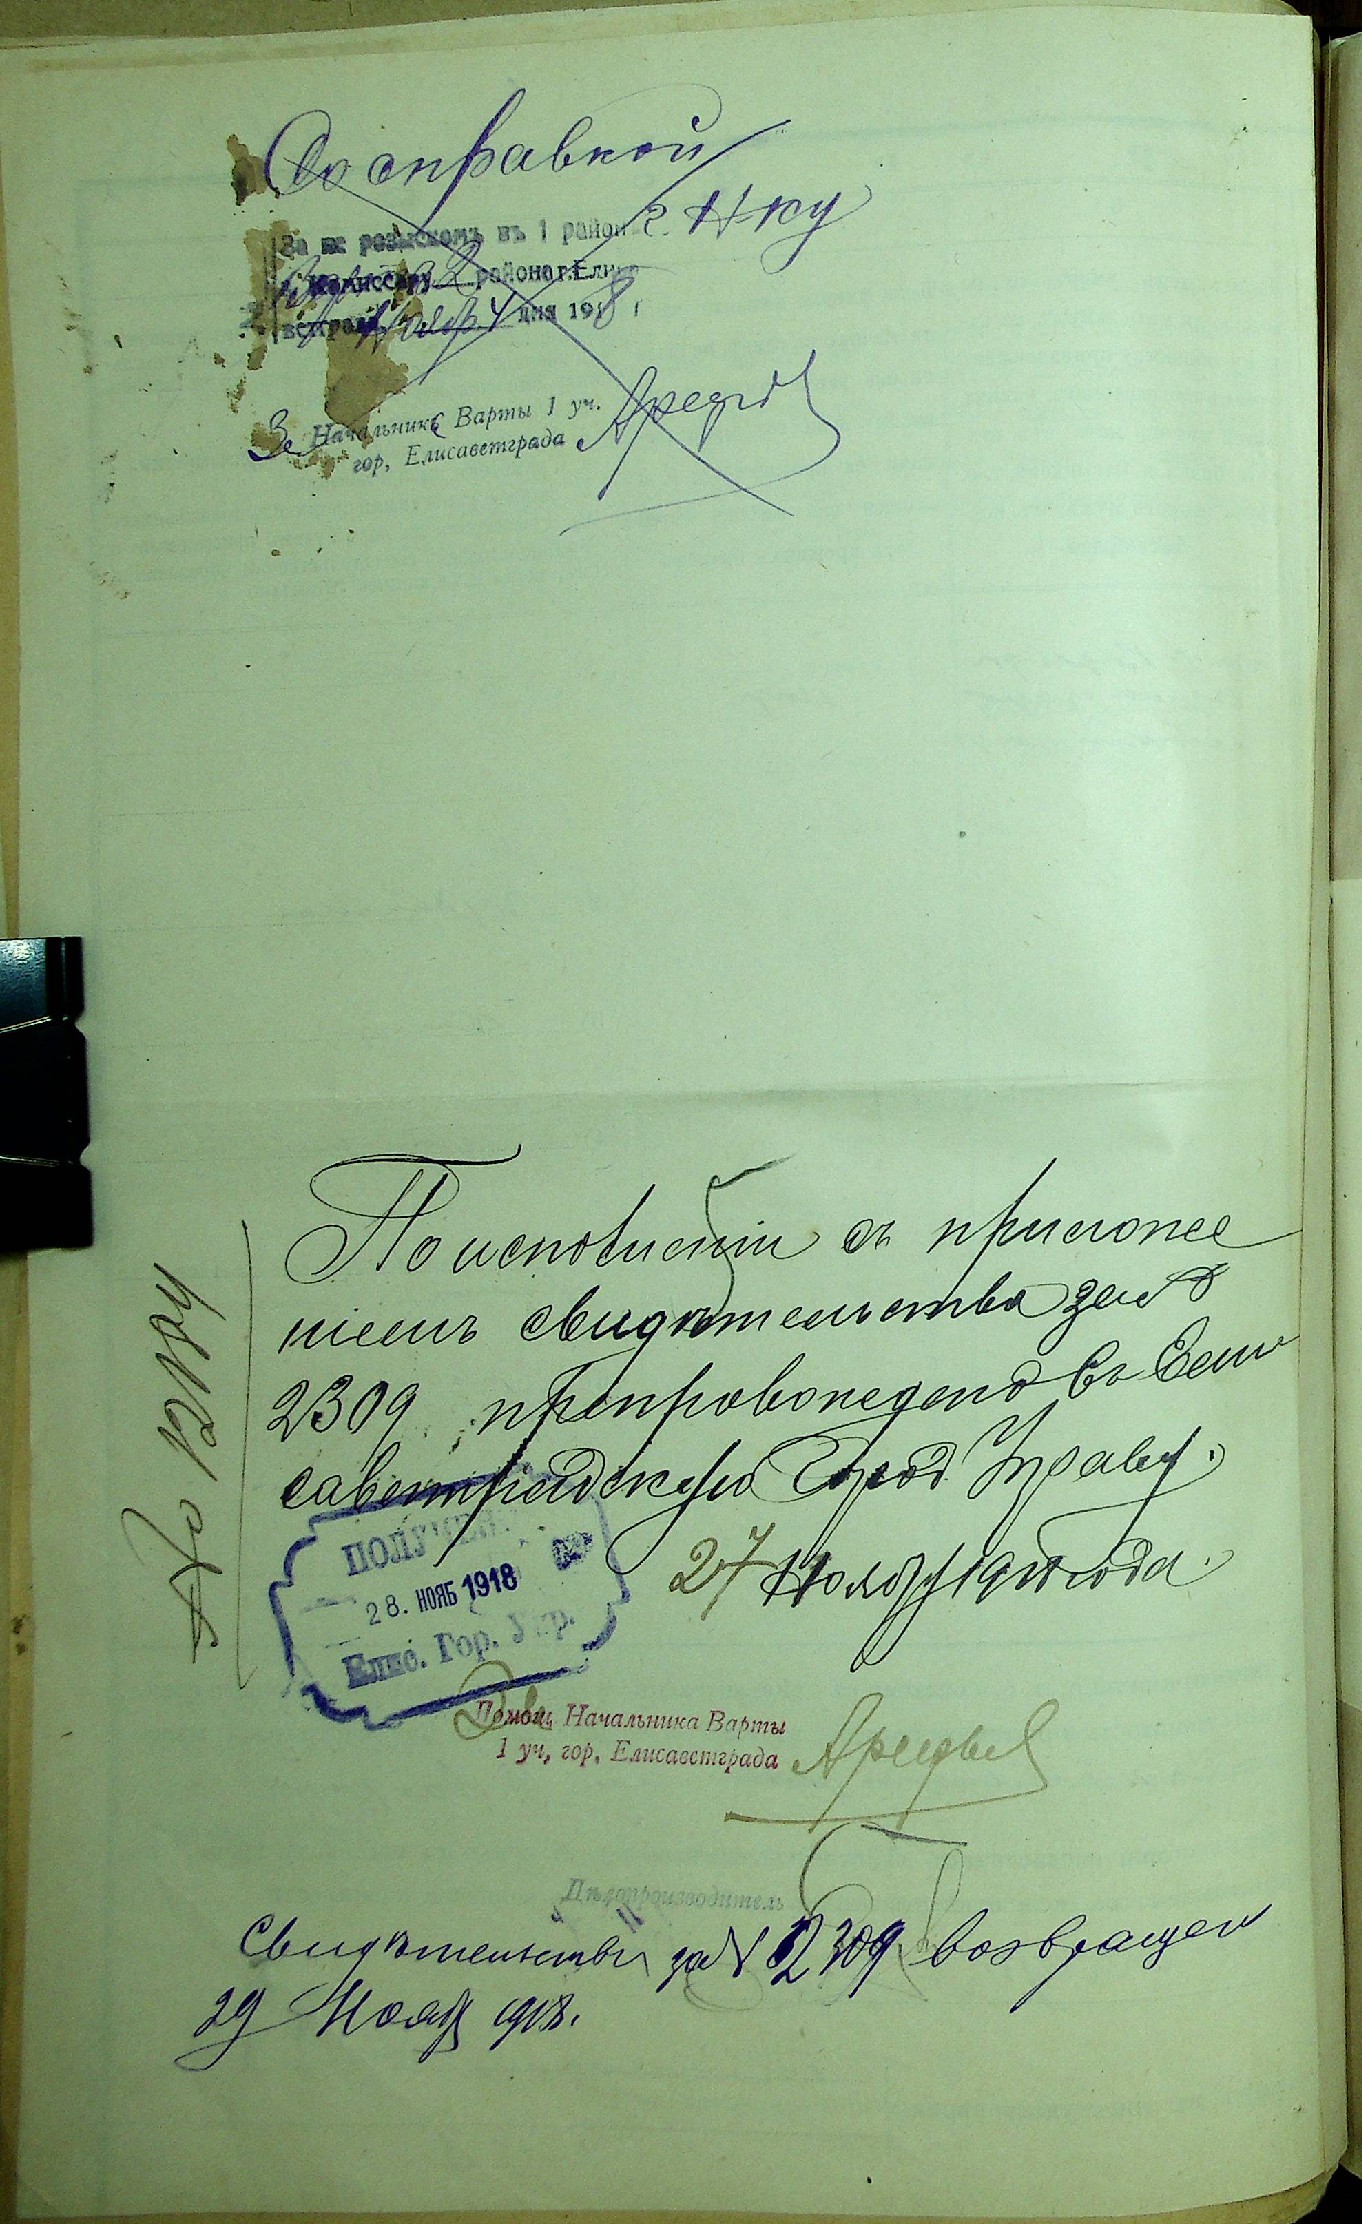 Со справкой
За не розыскомъ въ 1 район
Комиссару 2 района г. Елиса
ветграда Нояб 4 дня 1918 г
За Начальника Варты 1 уч.
гор. Елисаветграда
По исполненіи съ приложе
ніемъ свидѣтельства за №
2309 препровождено въ Ели
саветградскую Город. Управу.
27 Ноября 1918 года.
ПОЛУЧЕНО
28. НОЯБ 1918
Елис. Гор. Упр.
Помощ. Начальника Варты
1 уч, гор, Елисаветграда
Дѣлопроизводитель
Свидѣтельство за № 2309 возвращен
29 Нояб 1918.